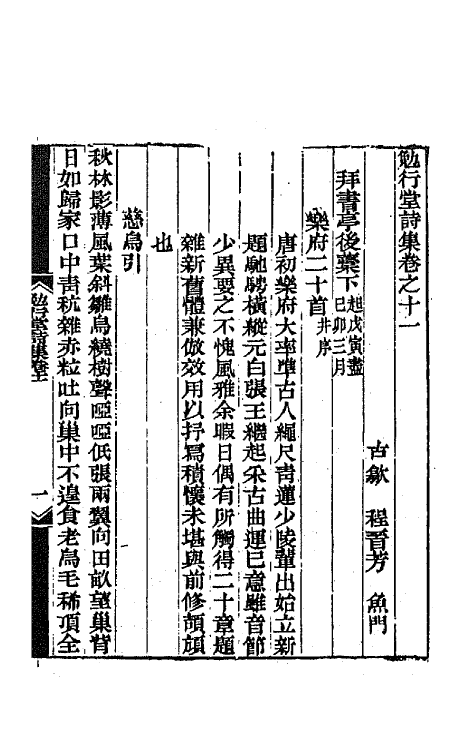 勉行堂詩集卷之十一
古歙　程晋芳　魚門
拜書亭後藁下起戊寅盡己卯三月
樂府二十首并序
唐初樂府大率準古人繩尺靑蓮少陵輩出始立新
題馳騁橫縱元白張王繼起釆古曲運已意雖音節
少異要之不愧風雅余暇日偶有所觸得二十章題
雜新舊體兼倣效用以抒寫積懷未堪與前修頡頏
也
慈烏引
秋林影薄風葉斜雛烏繞樹聲啞啞低張兩翼向田畝望巢背
日如歸家口中靑秔雜赤粒吐向巢中不遑食老烏毛稀頂全
勉行堂詩集卷十一
一